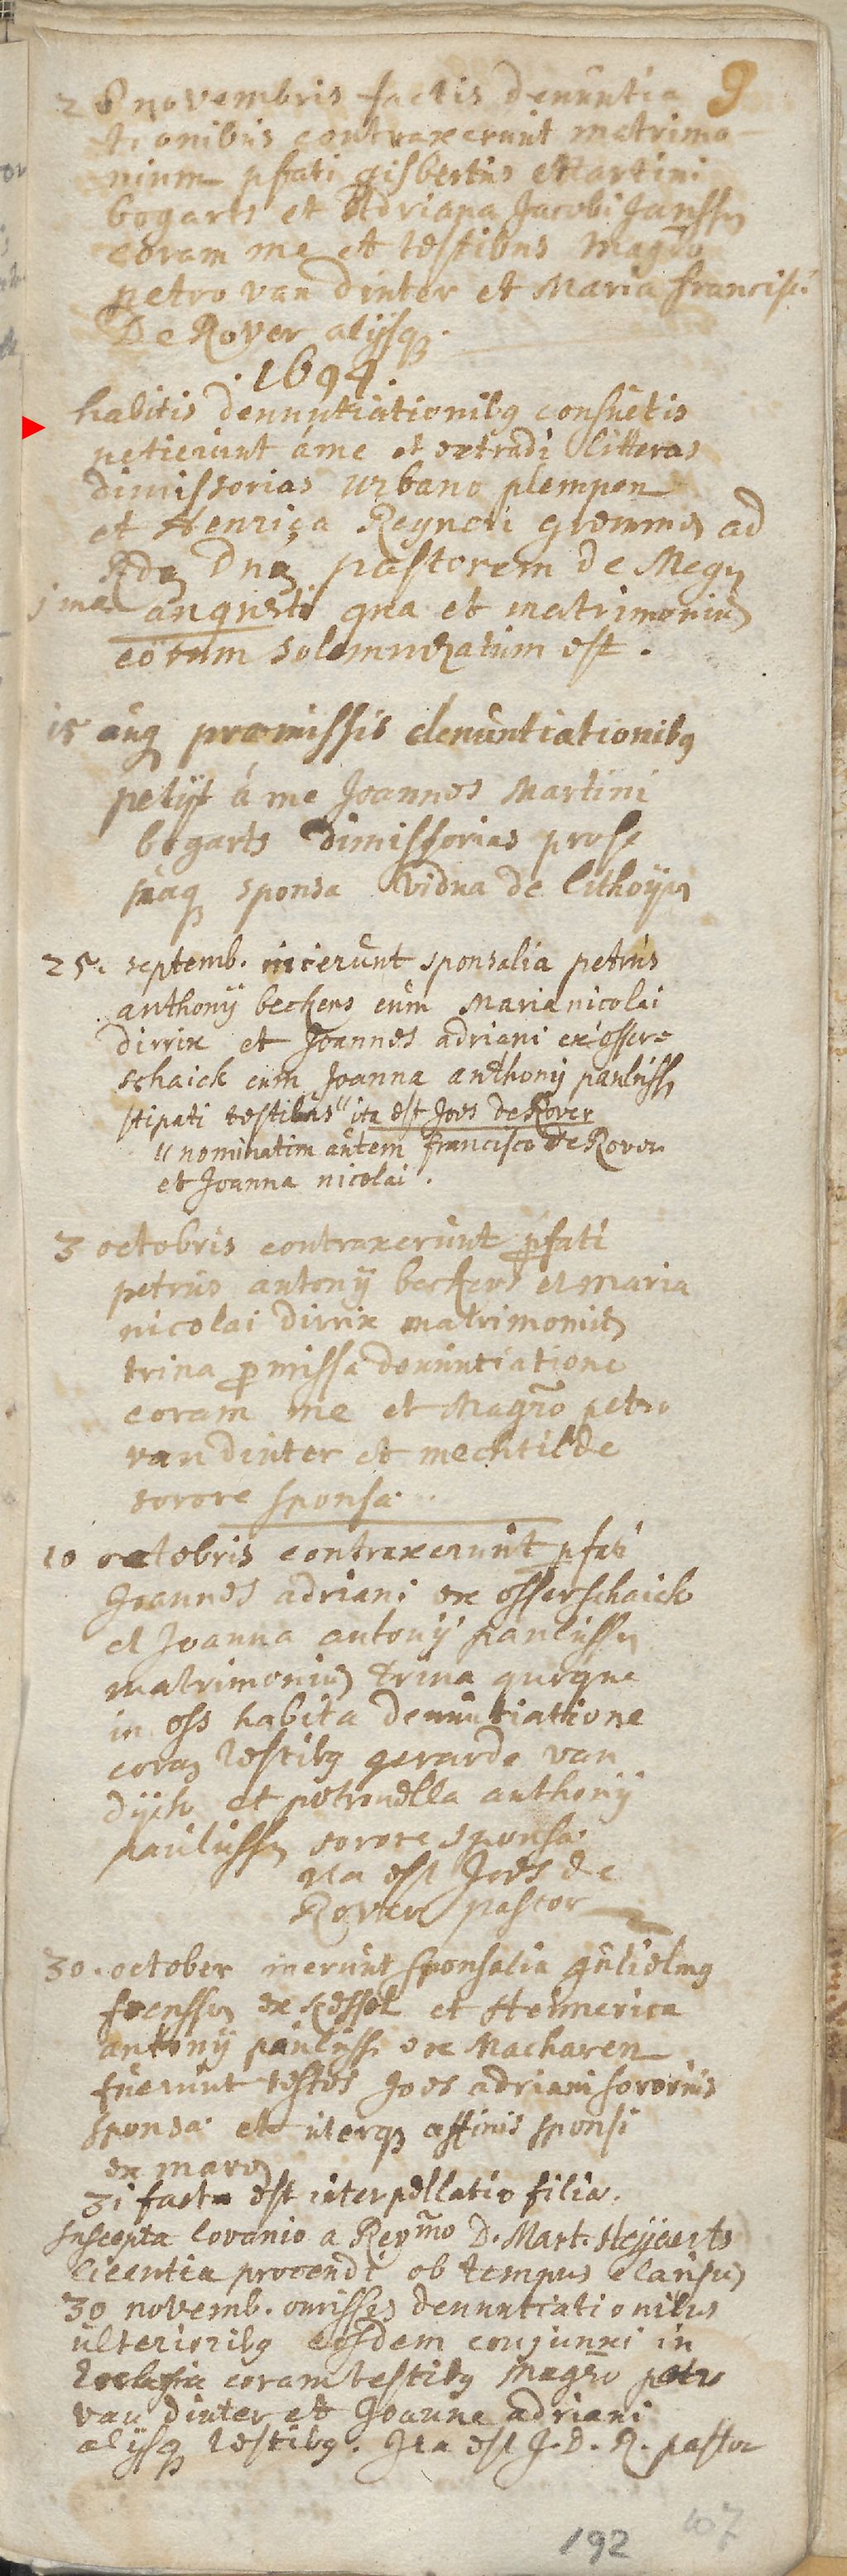 9
28 novembris factis denuntia
tionibus contraxerunt matrimo-
nium pfati gisbertus Martini
bogarts et Adriana Jacobi Janssen
coram me et testibus Magro
petro van dinter et Maria francisci
De Rover alijsq.
.1694.
habitis denuntiationibq consuetis
petierunt a me et extradi litteras
dimissorias urbano plempen
et Henrica Reyneri gremmen ad
Rdm Dnm pastorem de Megen
1ma augusti qua et matrimonium
eorum solemnizatum est.
15 aug praemissis denuntiationibq
petijt á me Joannes Martini
bogarts dimissorias pro se
suaq sponsa vidua de lithoijen
25. septemb. inierunt sponsalia petrus
anthonij beckers cum Maria nicolai
dirrix et Joannes adriani ex osser=
schaick cum Joanna anthonij paulussen
stipati testibus " ita est Joes de Rover
" nominatim autem francisco de Rover
et Joanna nicolai.
3 octobris contraxerunt pfati
petrus antonij beckers et maria
nicolai dirrix matrimonium
trina pmissa denuntiatione
coram me et Magro petro
van dinter et mechtilde
sorore sponsa.
10 octobris contraxerunt pfati
Joannes adriani ex osserschaick
et Joanna antonij paulussen
matrimonium trina quoque
in oss habita denuntiatione
coram testibq gerardo van
dijck et petronella anthonij
paulussen sorore sponsa
ita est Joes de
Rover pastor
30. october inierunt sponsalia guilielmq
fransen ex kessel et Hennerica
antonij pauluss ex Macharen
fuerunt testes Joes adriani sororius
sponsa et uterq affinis sponsi
ex maren
31 facta est interpellatio filia.
suscepta lovanio a Revmo D. Mart. Steijaerts
licentia procendi ob tempus clausum
30 novemb. omissis denuntiationibus
ulterioribq eosdem conjunxi in
Ecclesia coram testibq Magro petro
van dinter et Joanne adriani
alijsq testibq. Ita est J. D. R. pastor
192
107